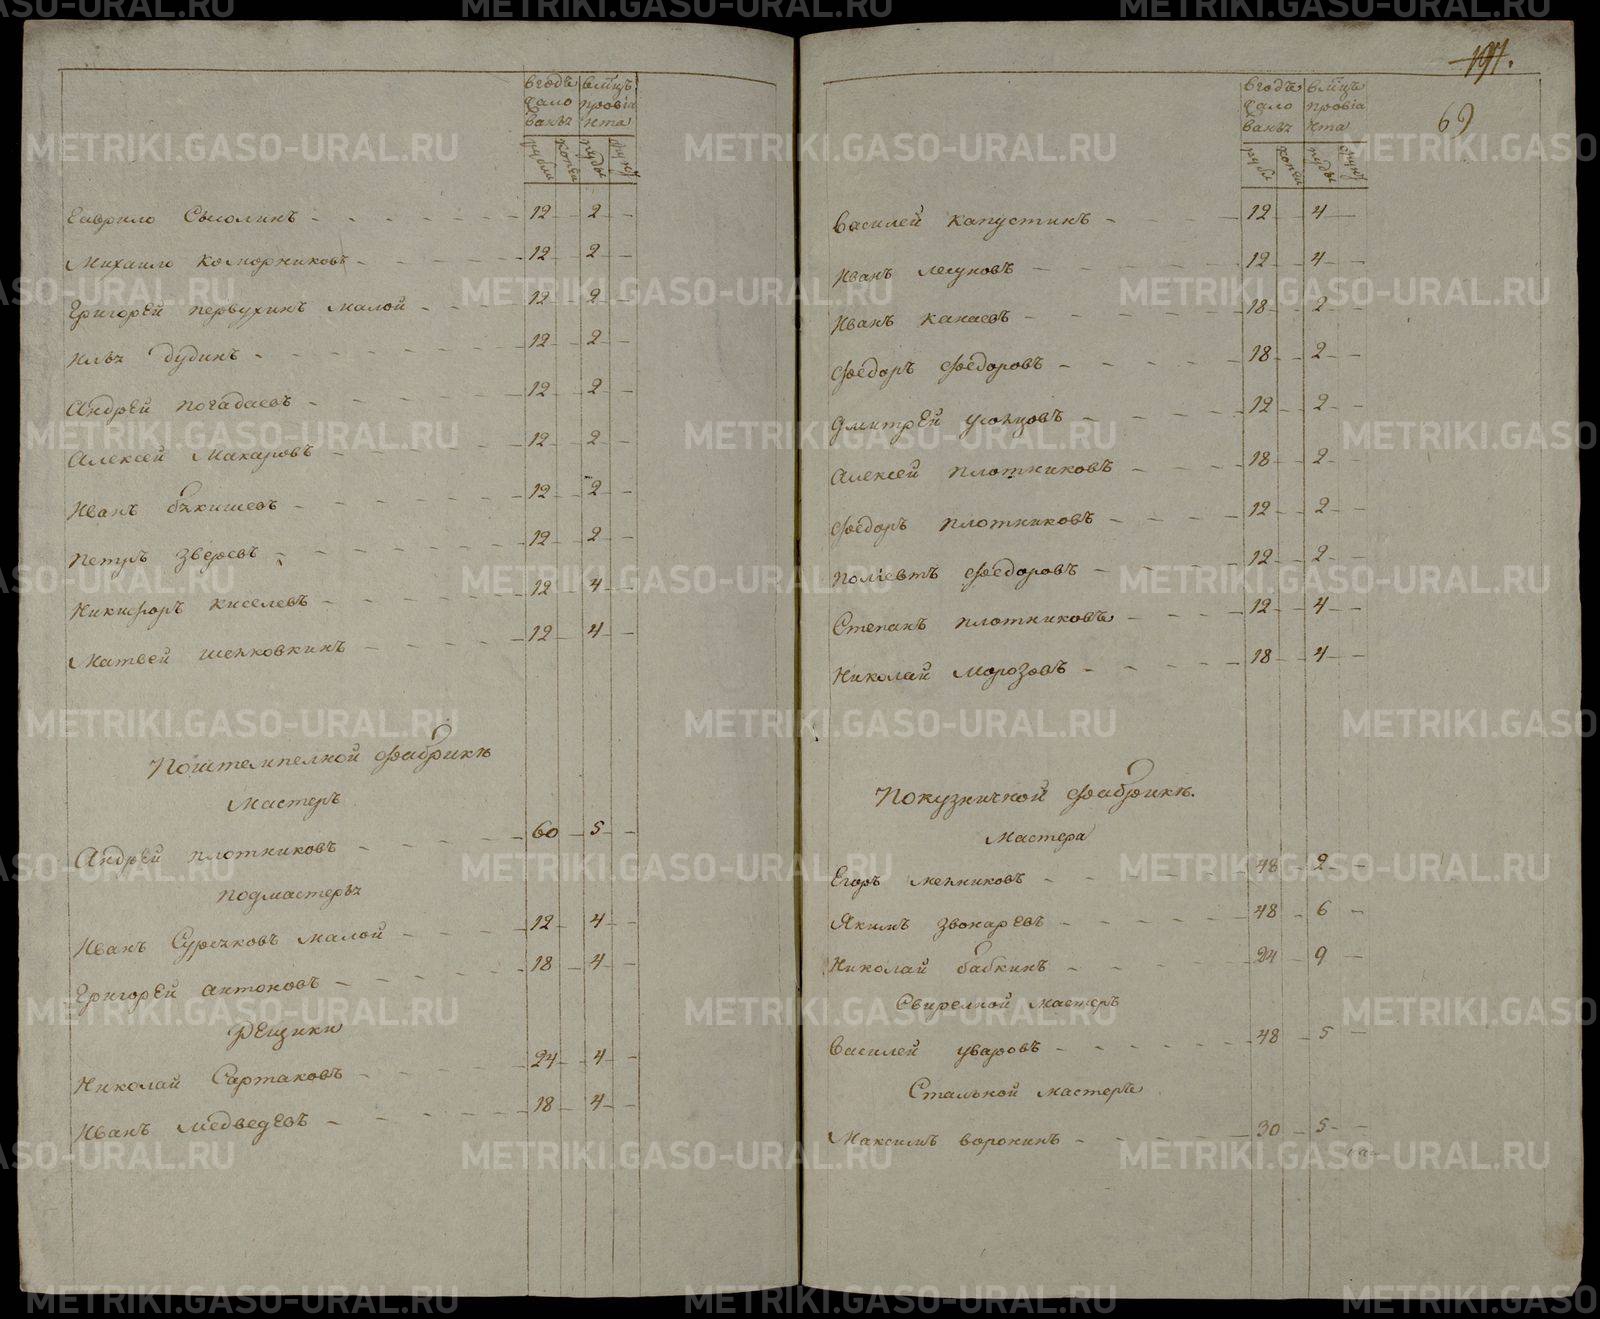 в годъ
жало
ванья
в мцъ
провіа
нта
рубли
копеи
пуды
фунт
Гаврило Сысолинъ 12 2
Михаило Коморниковъ 12 2
Григорей Первухинъ малой 12 2
Илья Дудинъ 12 2
Андрей Погадаевъ 12 2
Алексей Макаровъ 12 2
Иванъ Бякишевъ 12 2
Петръ Зверевъ 12 2
Никифоръ Киселевъ 12 4
Матвей 12 4
По штемпелной фабрике
Мастеръ
Андрей Плотниковъ 60 5
подмастерья
Иванъ Суречковъ малой 12 4
Григорей Антоновъ 18 4
Резщики
Николай Сартаковъ 24 4
Иванъ Медведевъ 18 4
197.
69
в годъ
жало
ванья
в мцъ
провіа
нта
рубли
копеи
пуды
фунт
Василей Капустинъ 12 4
Иванъ Легуновъ 12 4
Иванъ Канаевъ 18 2
Федоръ Федоровъ 18 2
Дмитрей Усольцовъ 12 2
Алексей Плотниковъ 18 2
Федоръ Плотниковъ 12 2
Полиевтъ Федоровъ 12 2
Степанъ Плотниковъ 12 4
Николай Морозовъ 18 4
По кузничной фабрике.
Мастера
Егоръ 48 2
Якимъ Звонаревъ 48 6
Николай Бабкинъ 24 9
Свирелной мастеръ
Василей Уваровъ 48 5
Стальной мастеръ
Максимъ Воронинъ 30 5